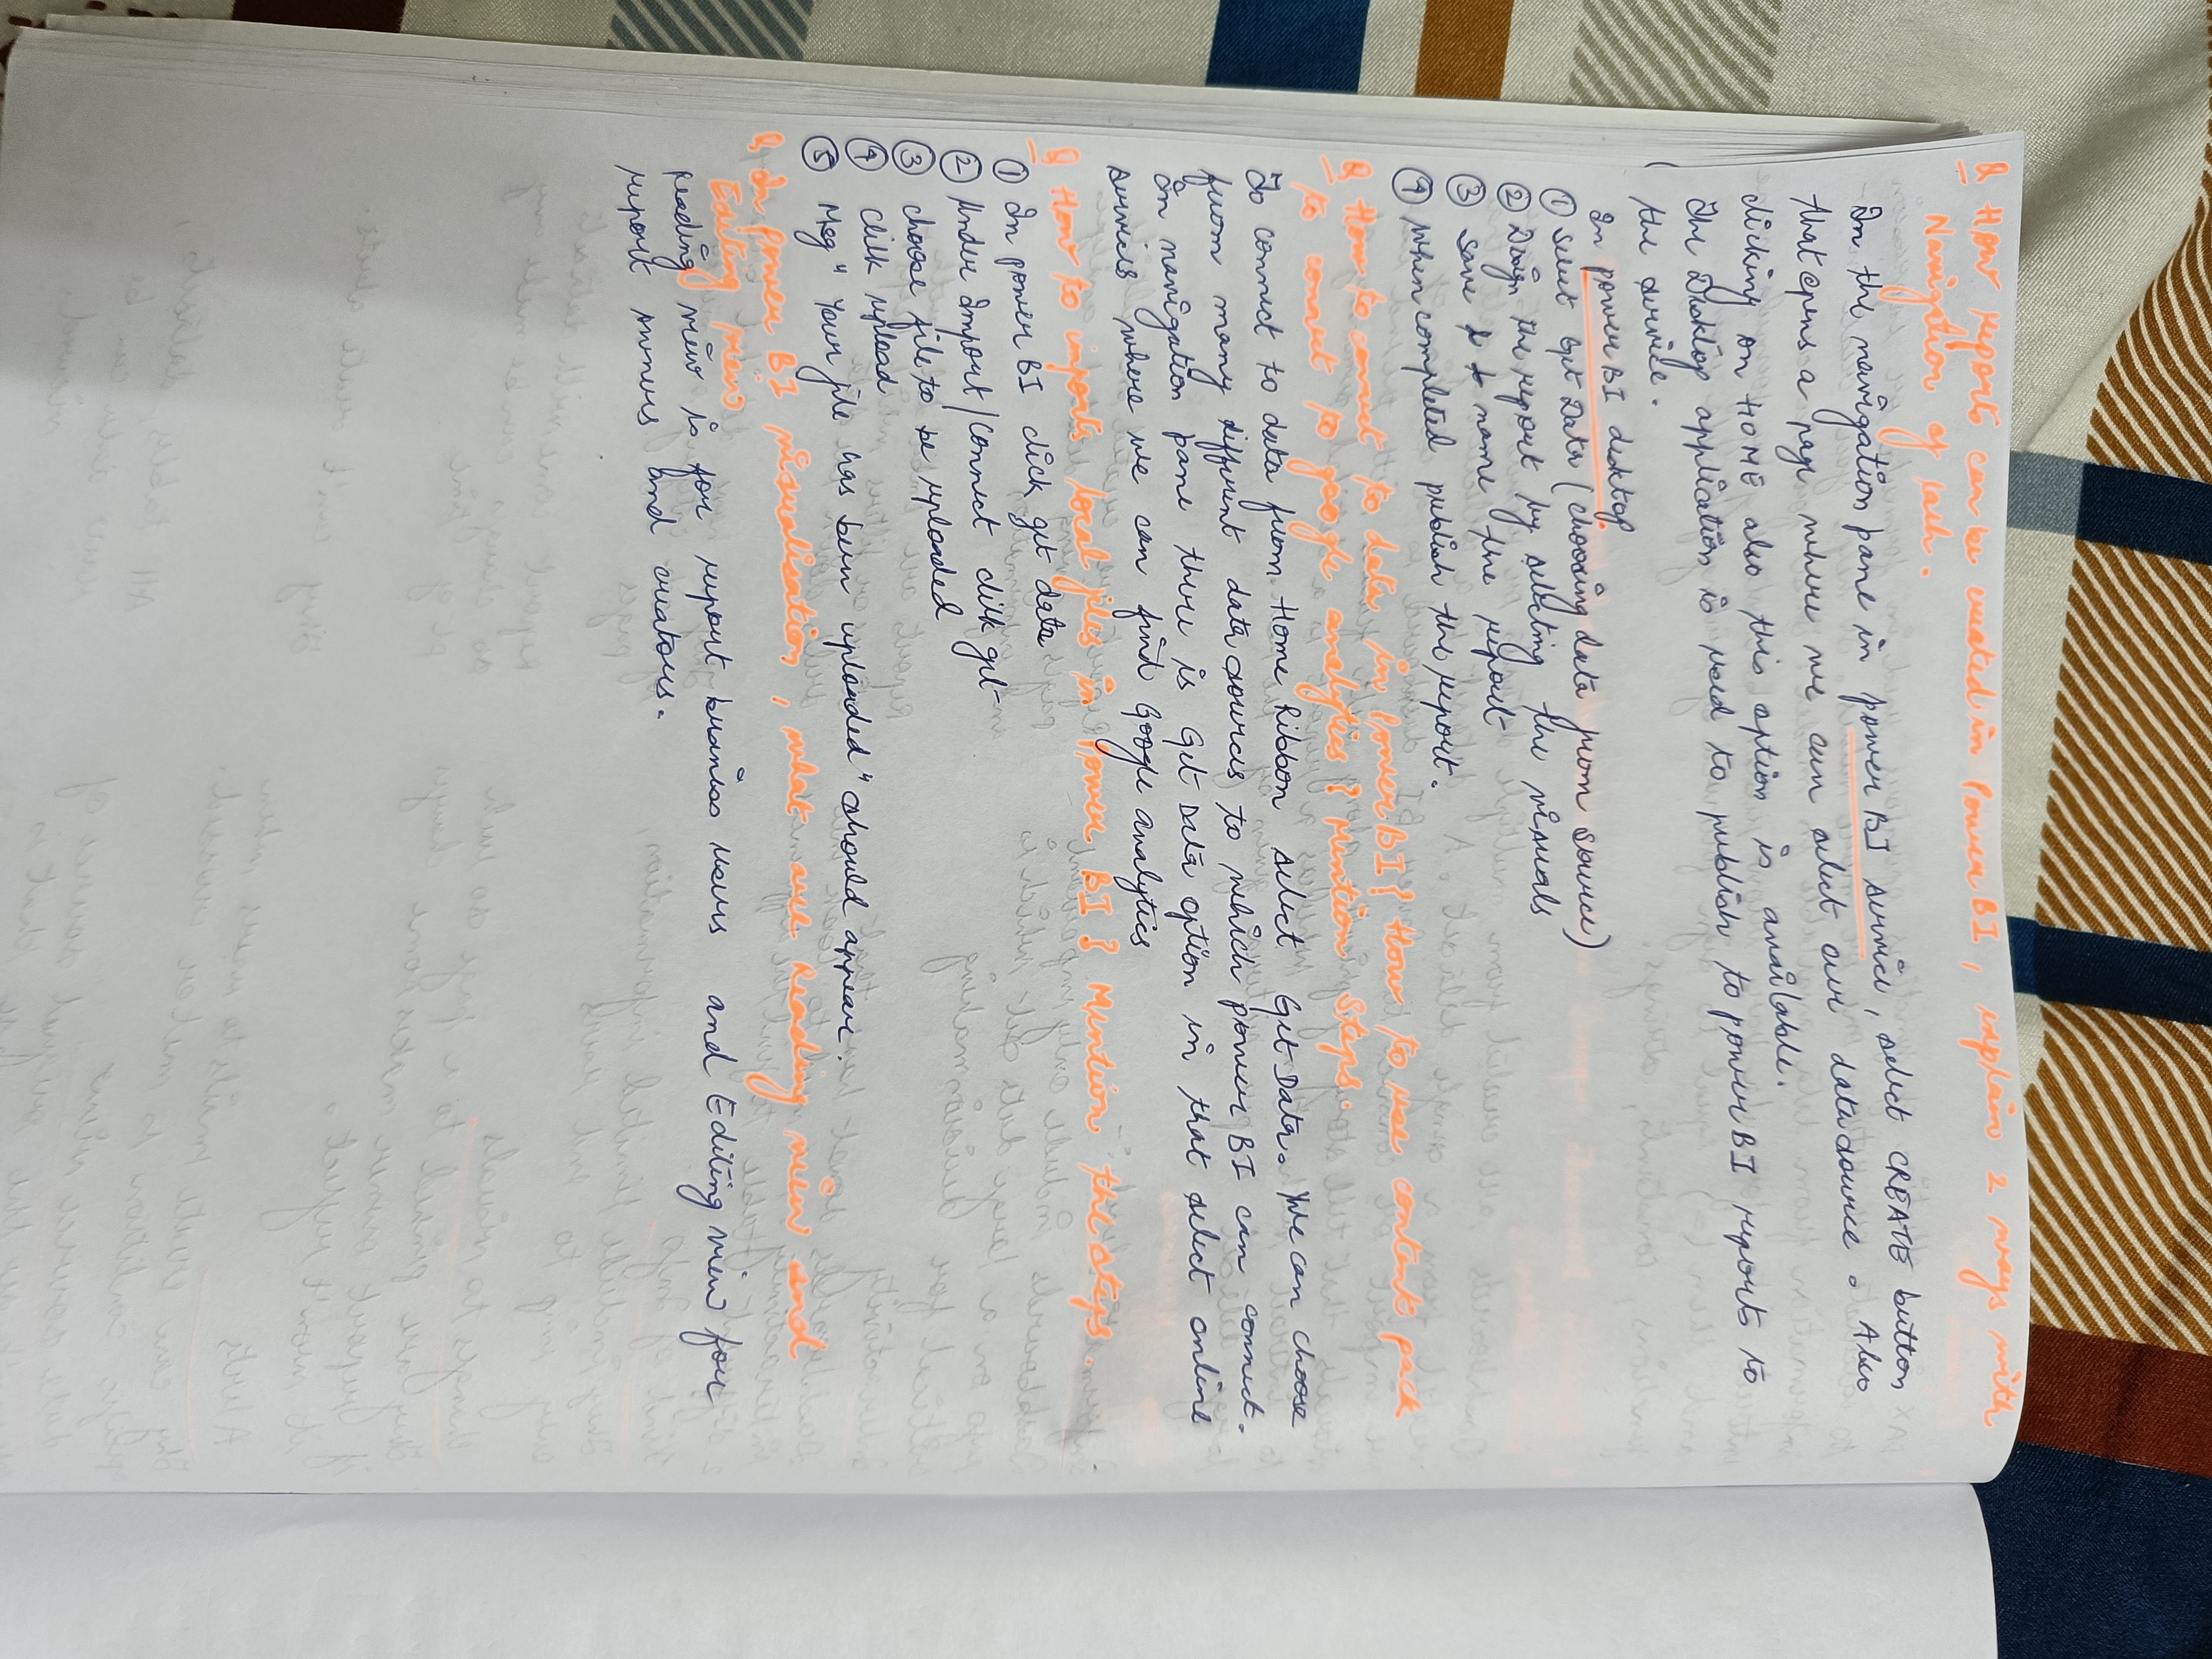 Q How reports can be created in Power BI, explain 2 ways with
Navigation of each.
In the navigation pane in power BI service, select CREATE button
that opens a page where we can select our datasource. Also
clicking on HOME also this option is available.
The Desktop application is used to publish to power BI reports to
the service.
In power BI desktop
① selet Get Data (choosing data from source)
② Dsign the report by selecting the visuals
③ save & name the report
④ When completed publish the report.
Q How to connect to data in Power BI? How to use content pack
to connect to google analytics? Mention Steps.
To connect to data from Home Ribbon select Get Data. We can choose
from many different data sources to which power BI can connect.
In navigation pane there is Get Data option in that select online
services where we can find google analytics
Q How to imports local files in Power BI? Mention the steps.
① In power BI click get data
② Under Import/Connect click get
③ choose file to be uploaded
④ click upload
⑤ Msg "Your file has been uploaded" should appear.
Q In power BI visualisation, what are Reading view and
Editing view
Reading view is for report business users and Editing view for
report owners and creators.